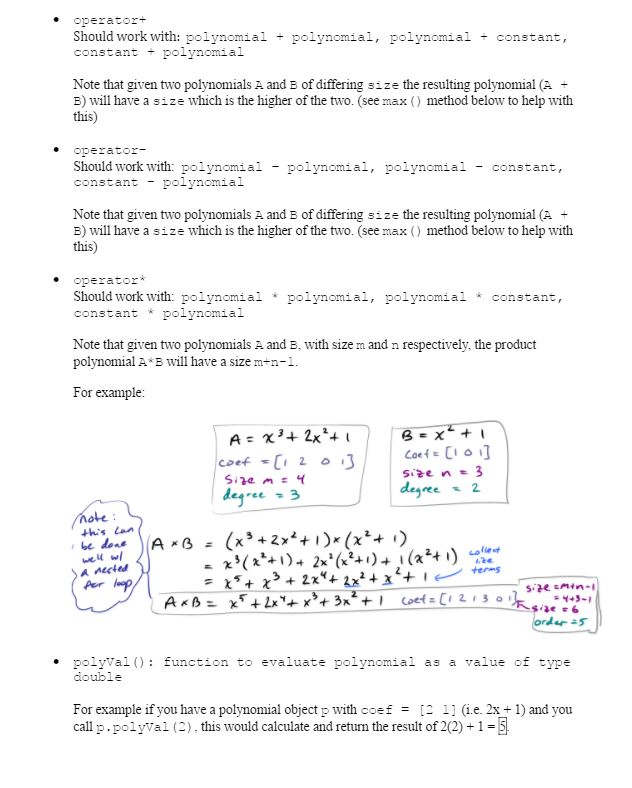 • operator+
Should work with: polynomial + polynomial, polynomial + constant,
constant + polynomial
Note that given two polynomials A and B of differing size the resulting polynomial (A +
B) will have a size which is the higher of the two. (see max() method below to help with
this)
• operator-
Should work with: polynomial - polynomial, polynomial - constant,
constant - polynomial
Note that given two polynomials A and B of differing size the resulting polynomial (A +
B) will have a size which is the higher of the two. (see max() method below to help with
this)
• operator*
Should work with: polynomial * polynomial, polynomial * constant,
constant * polynomial
Note that given two polynomials A and B, with size m and n respectively, the product
polynomial A*B will have a size m+n-1.
For example:
A = x³ + 2x² + 1
coef = [1 2 0 1]
size m = 4
degree = 3
B = x² + 1
coef = [1 0 1]
size n = 3
degree = 2
note:
this can
be done
well w/
a nested
for loop
A × B = (x³ + 2x² + 1) × (x² + 1)
= x³(x² + 1) + 2x²(x² + 1) + 1(x² + 1)
= x⁵ + x³ + 2x⁴ + 2x² + x² + 1
collect
like
terms
A × B = x⁵ + 2x⁴ + x³ + 3x² + 1 coef = [1 2 1 3 0 1]
size = m+n-1
= 4+3-1
size = 6
order = 5
• polyVal(): function to evaluate polynomial as a value of type
double
For example if you have a polynomial object p with coef = [2 1] (i.e. 2x + 1) and you
call p.polyVal(2), this would calculate and return the result of 2(2) + 1 = 5.